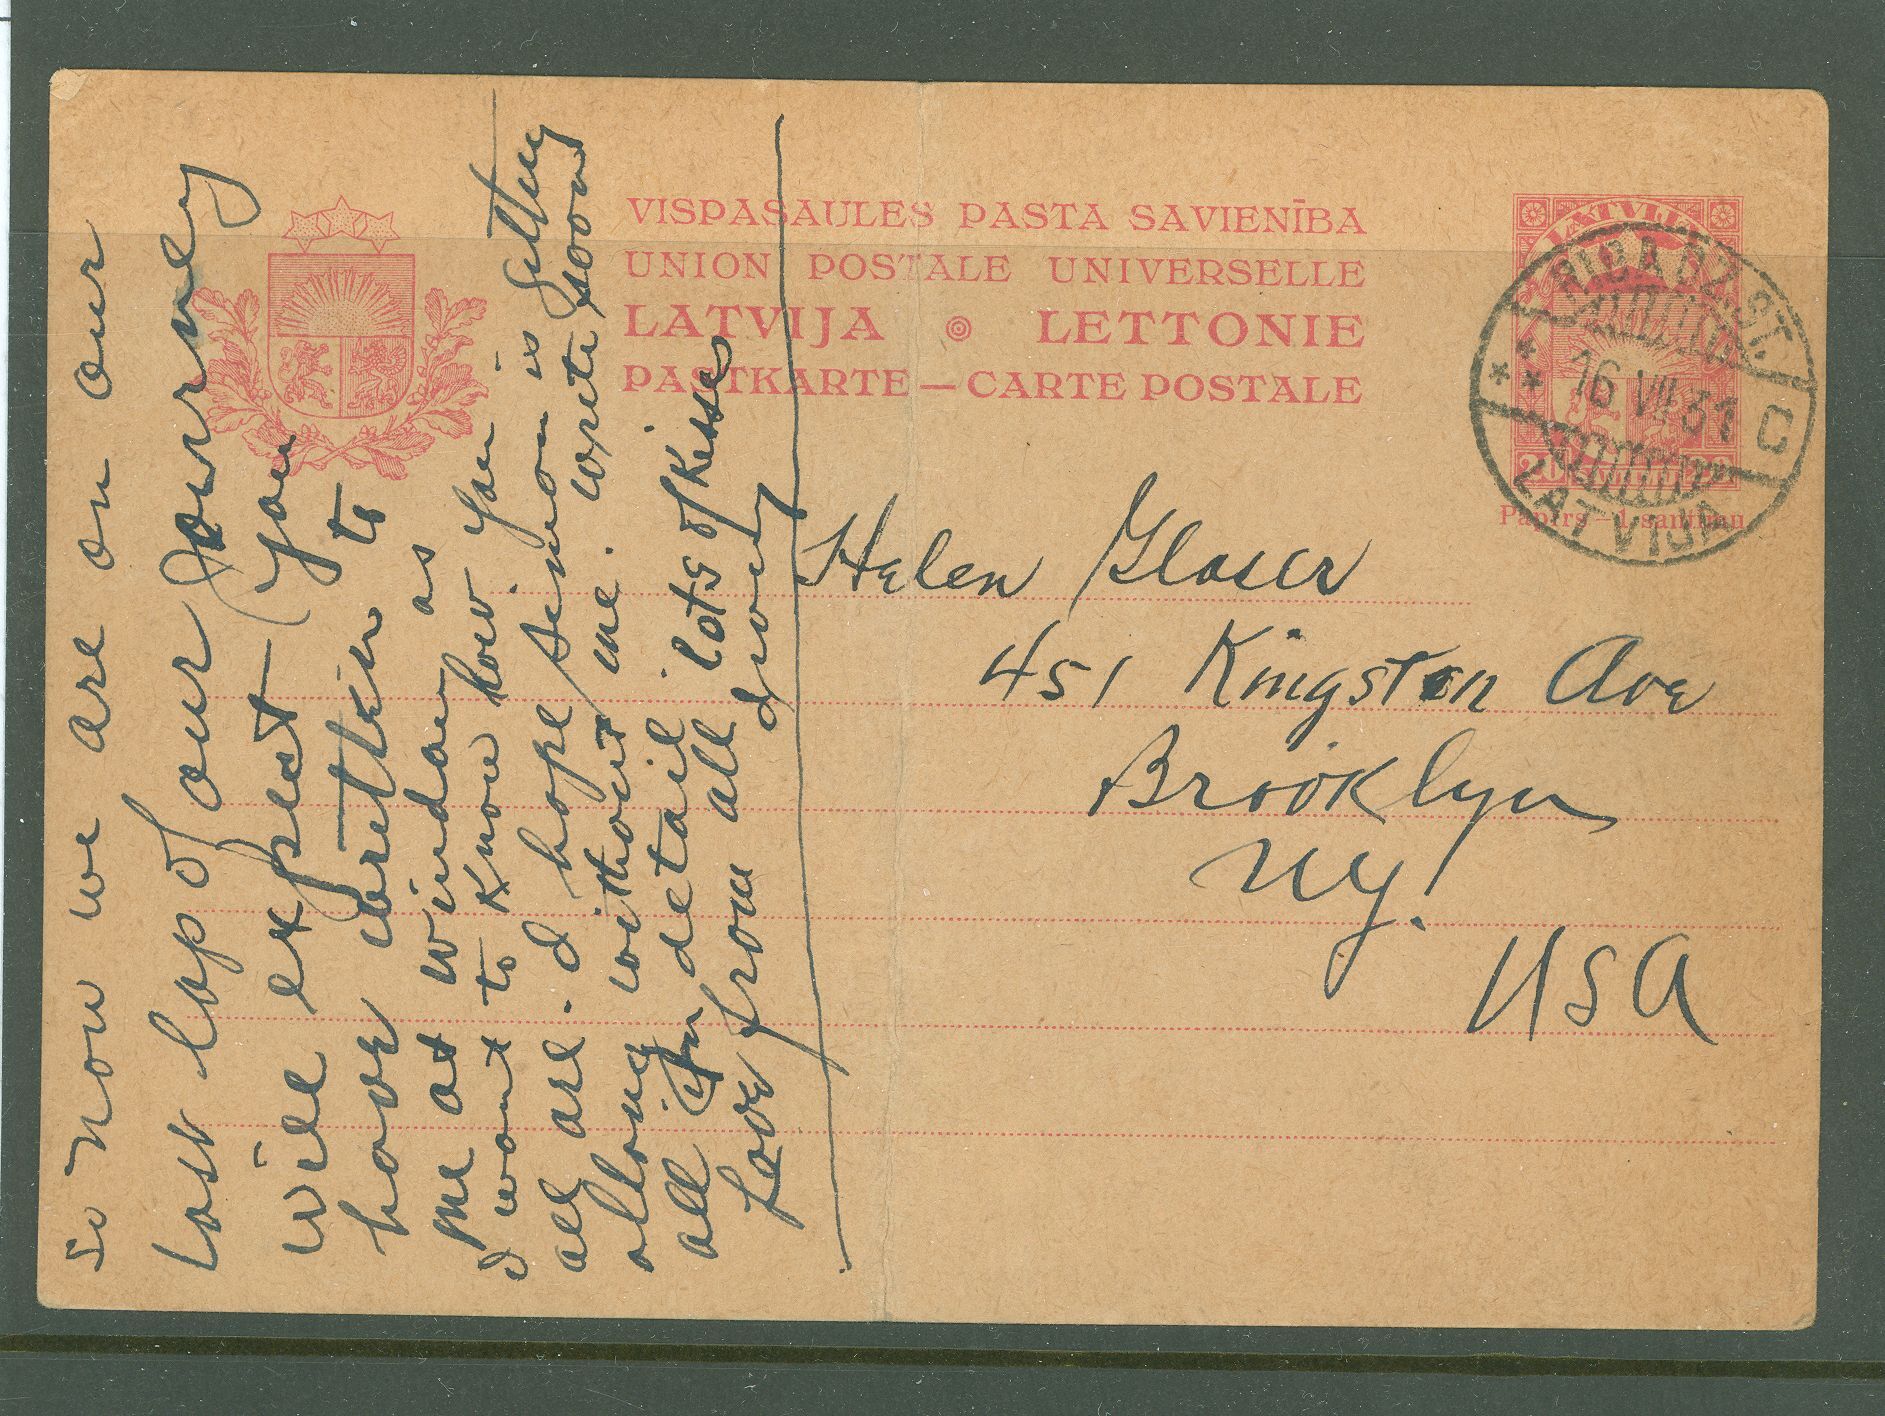 VISPASAULES PASTA SAVIENĪBA
UNION POSTALE UNIVERSELLE
LATVIJA LETTONIE
PASTKARTE — CARTE POSTALE
LATVIJA
RIGA DZ. ST.
16 VII 31 C
LATVIJA
20
Papīrs — 1 santīmu
Helen Glaser
451 Kingston Ave
Brooklyn
NY.
USA
So now we are on our
last lap of our Journey
will expect you to
have written to
me at as
I want to know how you
all are. I hope Simon is getting
allong without me. write soon
all in detail lots of kisses
Love from all